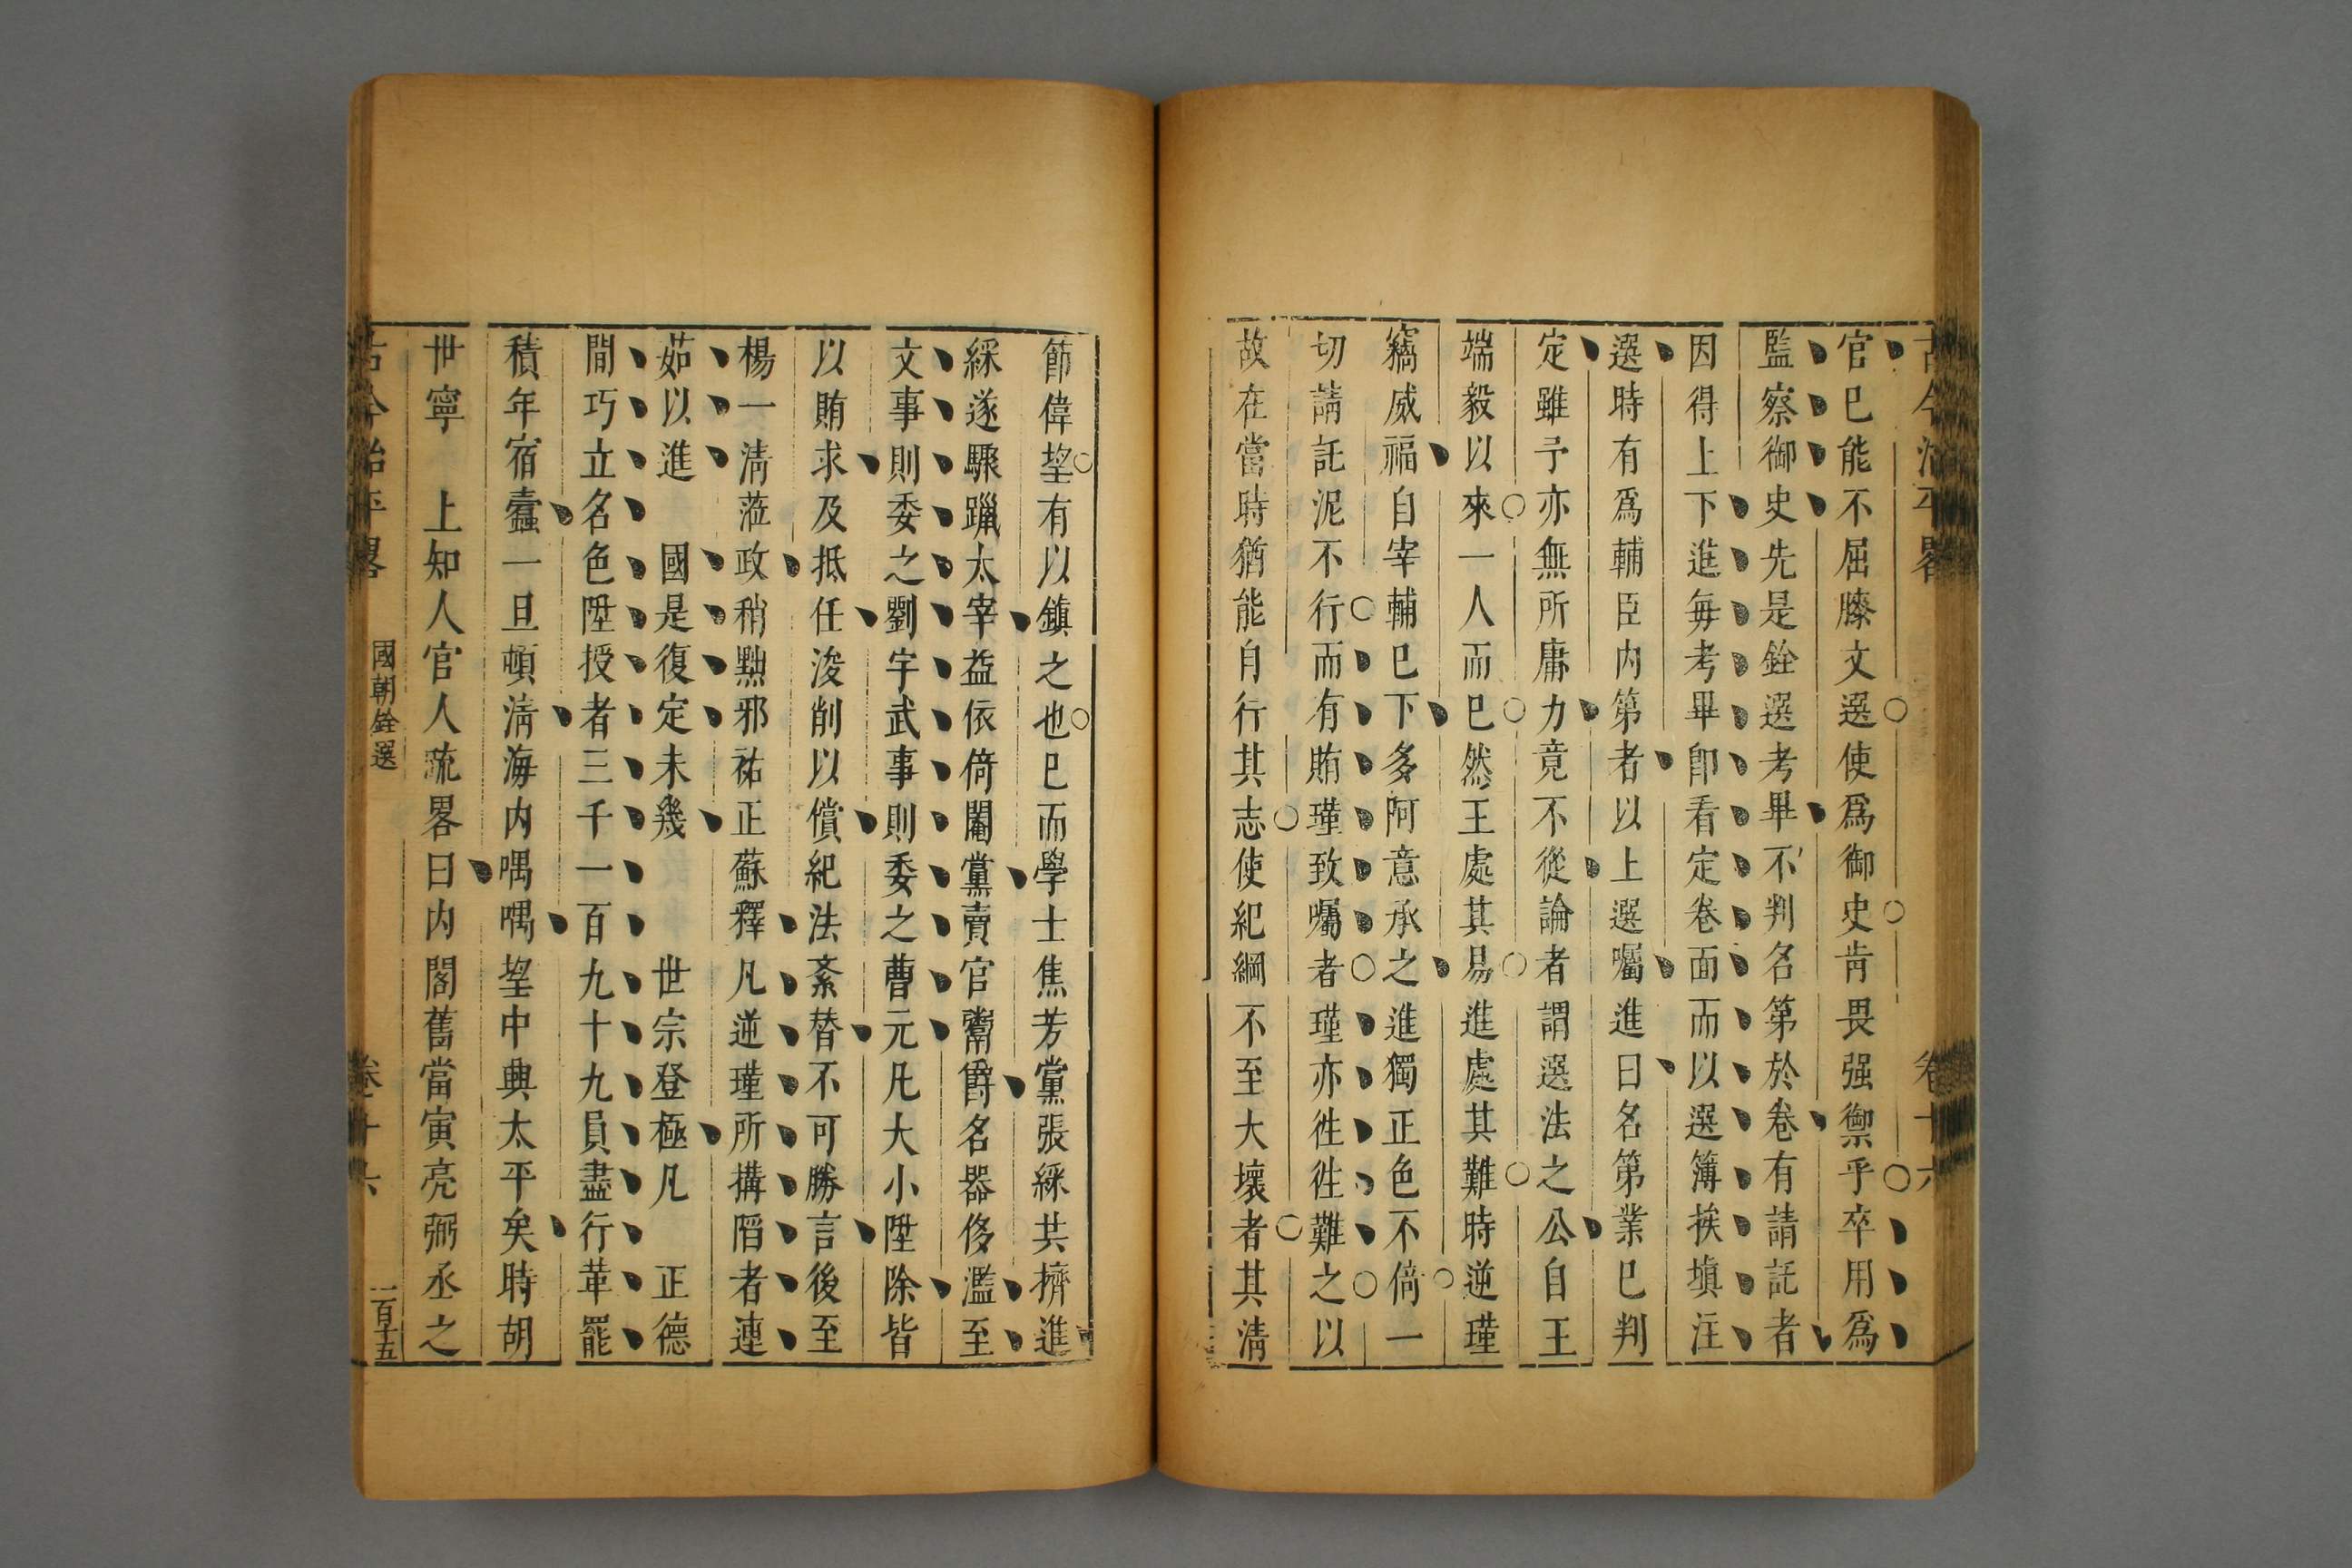 古今治平畧 卷十六
官已能不屈膝文選使爲御史肯畏强禦乎卒用爲
監察御史先是銓選考畢不判名第於卷有請託者
因得上下進每考畢即看定卷面而以選簿挨填注
選時有爲輔臣内第者以上選囑進曰名第業已判
定雖予亦無所庸力竟不從論者謂選法之公自王
端毅以來一人而已然王處其易進處其難時逆瑾
竊威福自宰輔已下多阿意承之進獨正色不倚一
切請託泥不行而有賄瑾致囑者瑾亦徃徃難之以
故在當時猶能自行其志使紀綱不至大壞者其清
節偉望有以鎮之也已而學士焦芳黨張綵共擠進
綵遂驟躐太宰益依倚閹黨賣官鬻爵名器侈濫至
文事則委之劉宇武事則委之曹元凡大小陞除皆
以賄求及抵任浚削以償紀法紊替不可勝言後至
楊一清蒞政稍黜邪祐正蘇釋凡逆瑾所搆陷者連
茹以進 國是復定未幾 世宗登極凡 正德
間巧立名色陞授者三千一百九十九員盡行革罷
積年宿蠹一旦頓清海内喁喁望中興太平矣時胡
世寧 上知人官人疏畧曰内閣舊當寅亮弼丞之
古今治平畧 國朝銓選 卷十六 一百十五